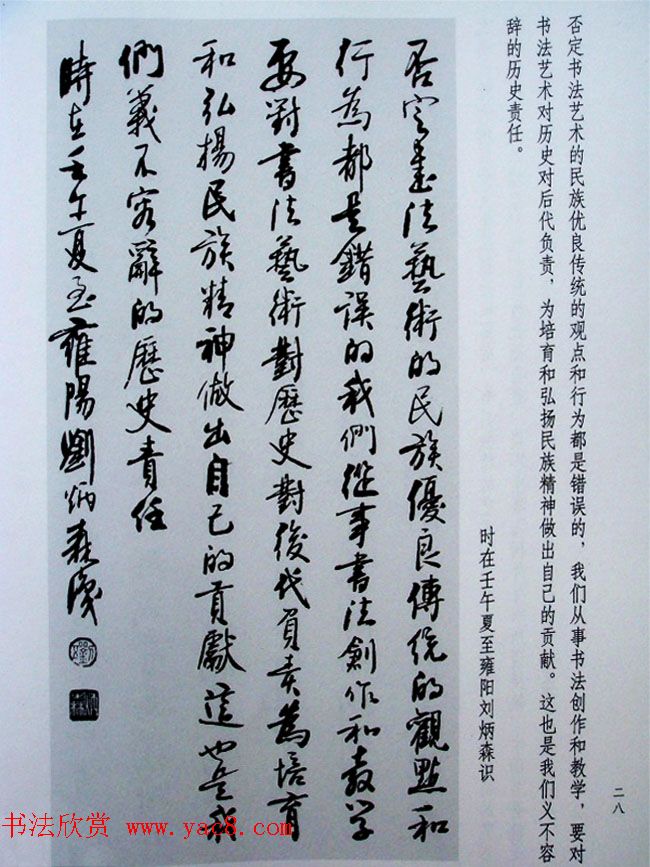 二八
否定书法艺术的民族优良传统的观点和行为都是错误的，我们从事书法创作和教学，要对
书法艺术对历史对后代负责，为培育和弘扬民族精神做出自己的贡献。这也是我们义不容
辞的历史责任。
时在壬午夏至雍阳刘炳森识
否定書法藝術的民族優良傳統的觀點和
行為都是錯誤的我們從事書法創作和教学
要對書法藝術對歷史對後代負責為培育
和弘揚民族精神做出自己的貢獻這也是我
們義不容辭的歷史責任
時在壬午夏至雍陽劉炳森識
书法欣赏 www.yac8.com